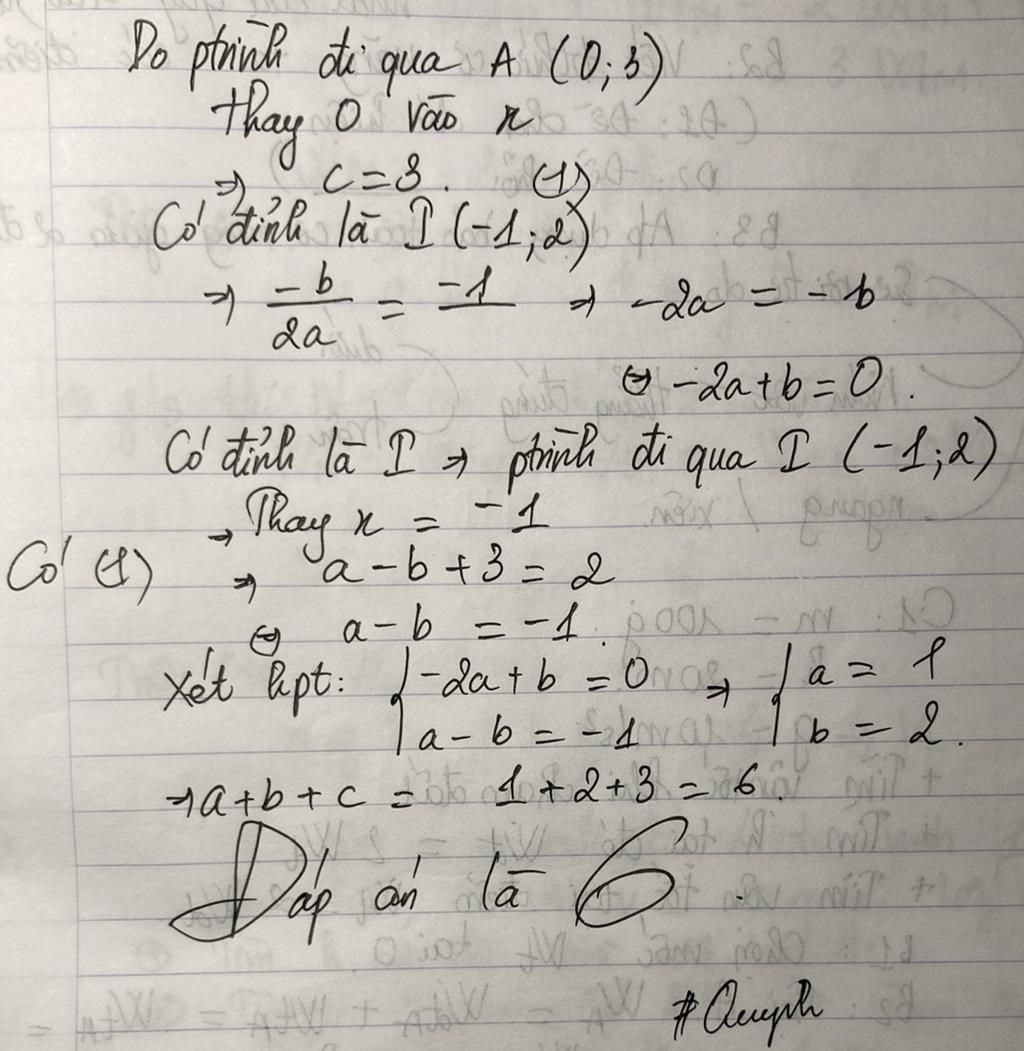 Do ptrình đi qua A (0;3)
thay 0 vào x
⇒ c = 3. (1)
Có đỉnh là I (-1;2)
⇒ -b/2a = -1 ⇒ -2a = -b
⇔ -2a + b = 0.
Có đỉnh là I ⇒ ptrình đi qua I (-1;2)
→ Thay x = -1
Có (1) ⇒ a - b + 3 = 2
⇔ a - b = -1.
Xét hpt: { -2a + b = 0 ⇒ { a = 1
a - b = -1 b = 2.
⇒ a + b + c = 1 + 2 + 3 = 6.
Đáp án là 6.
#Quỳnh